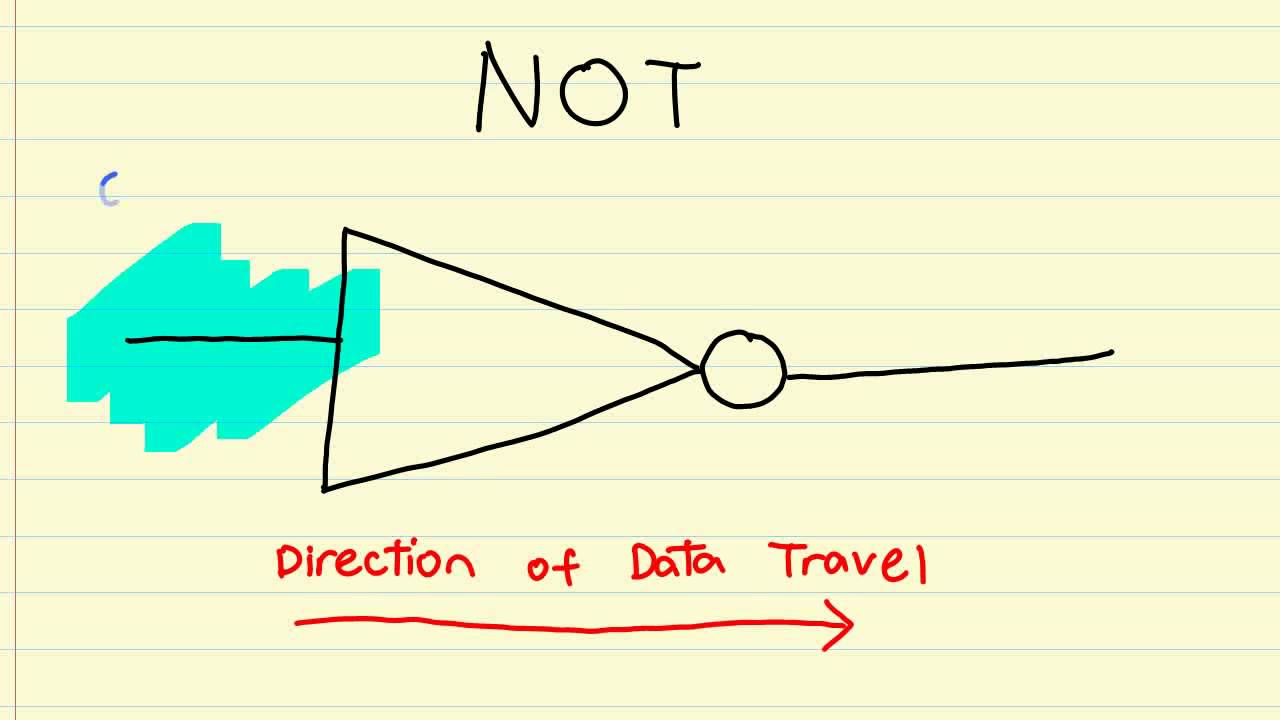 NOT
Direction of Data Travel